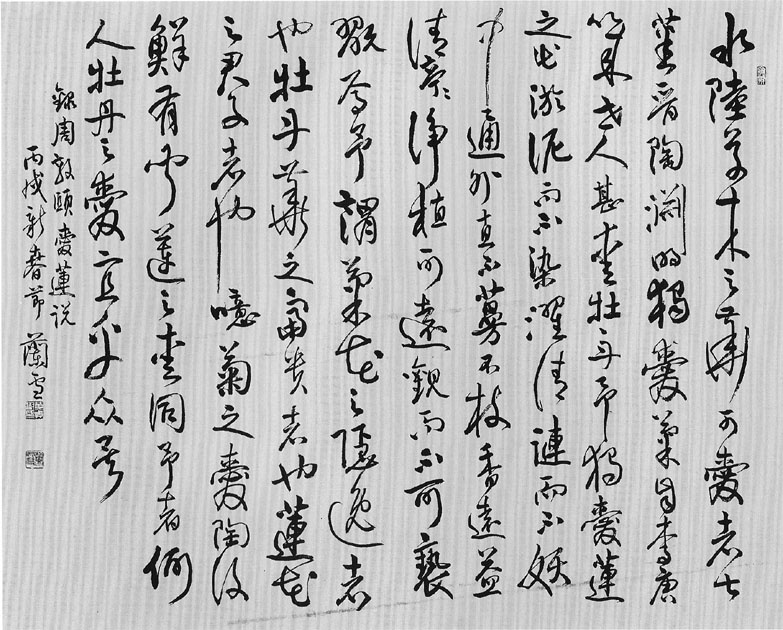 水陸草木之華可愛者甚
蕃晉陶淵明獨愛菊自李唐
以來世人甚愛牡丹予獨愛蓮
之出淤泥而不染濯清漣而不妖
中通外直不蔓不枝香遠益
清亭亭淨植可遠觀而不可褻
翫焉予謂菊花之隱逸者
也牡丹華之富貴者也蓮花
之君子者也噫菊之愛陶後
鮮有聞蓮之愛同予者何
人牡丹之愛宜乎众矣
錄周敦頤愛蓮说
丙戌新春節蘭雪